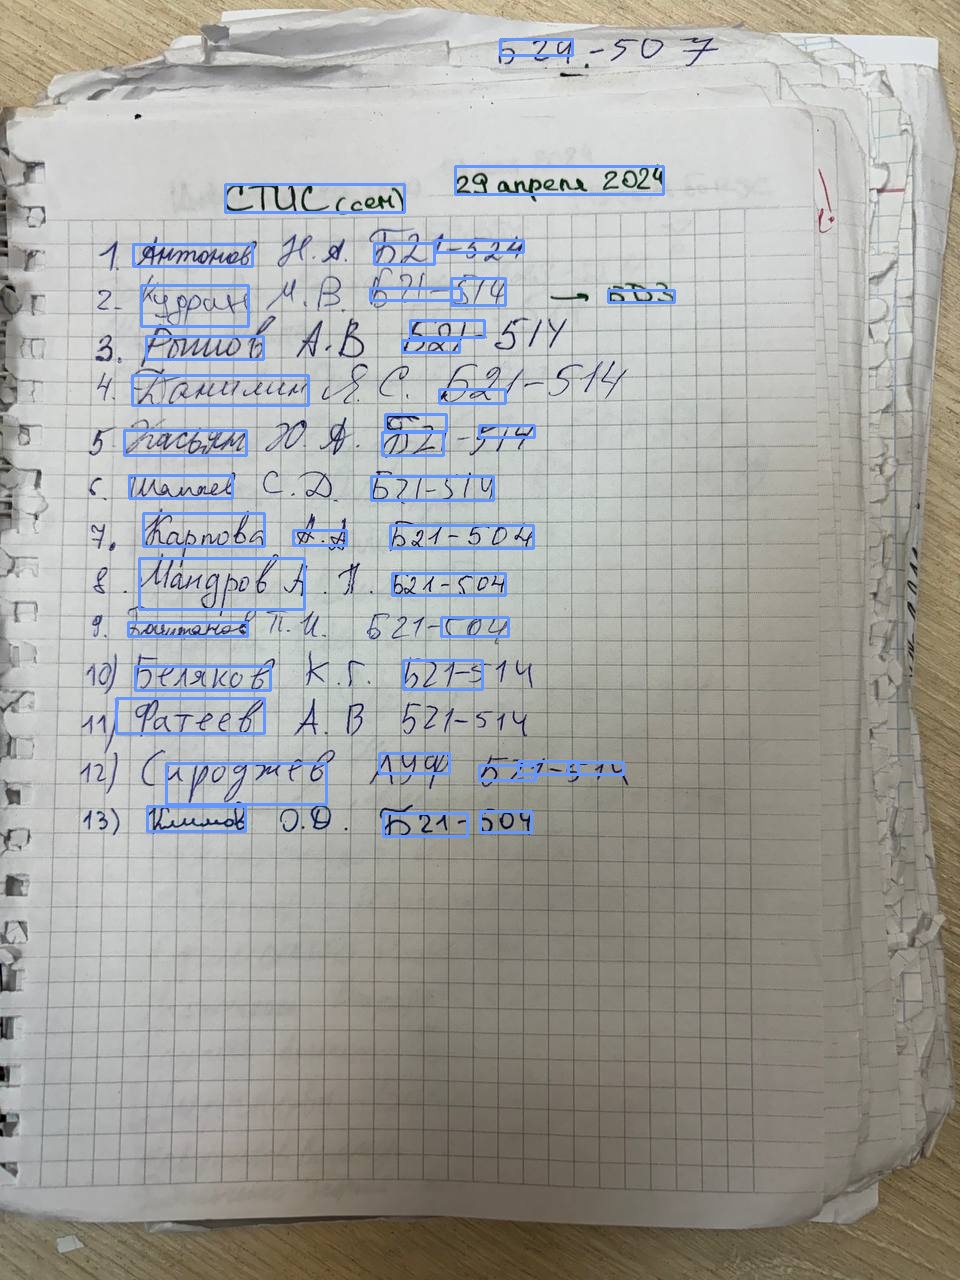 Б24-507
СТИС (сем) 29 апреля 2024
1. Антонов Н. А. Б21-524
2. Кудран М. В. Б21-514 → БДЗ
3. А. В Б21-514
4. Данилин Я. С. Б21-514
5 Касьян Ю. А. Б21-514
6. Шапаев С. Д. Б21-514
7. Карпова А. А Б21-504
8. Мандров А. П. Б21-504
9. Каштанов П. И. Б21-504
10) Беляков К. Г. Б21-514
11) Фатеев А. В Б21-514
12) Сироджев Б21-514
13) Климов О. Д. Б21-504